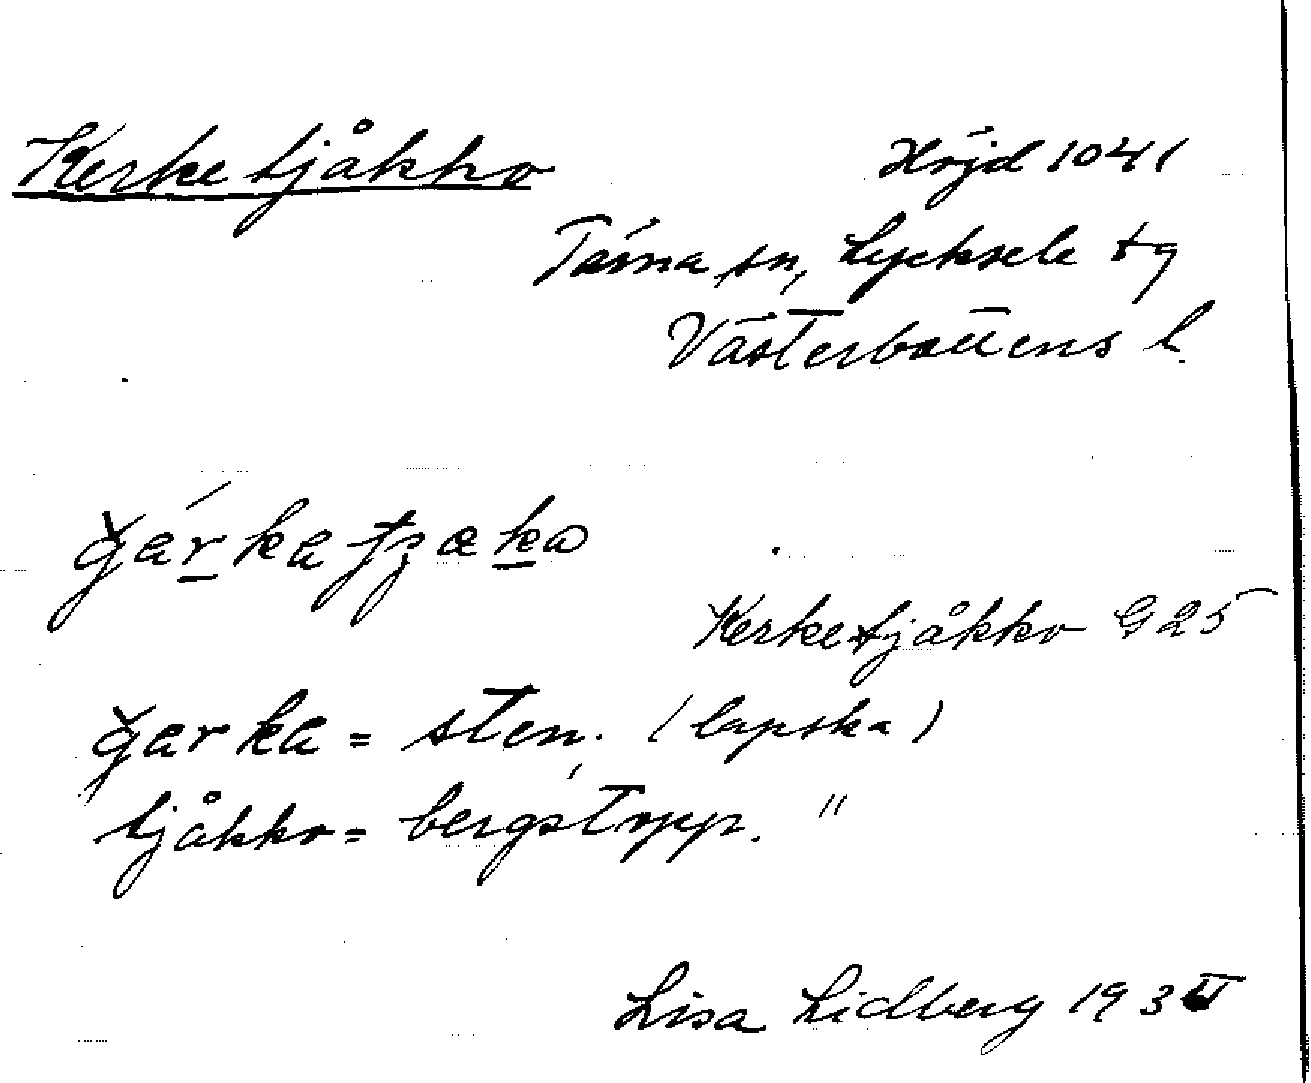 Kerketjåkko
Höjd 1041
Tärna sn, Lycksele tg
Västerbottens l.
Kerketjåkko G 25
= sten. (lapska)
tjåkko = bergstopp. "
Lisa Lidberg